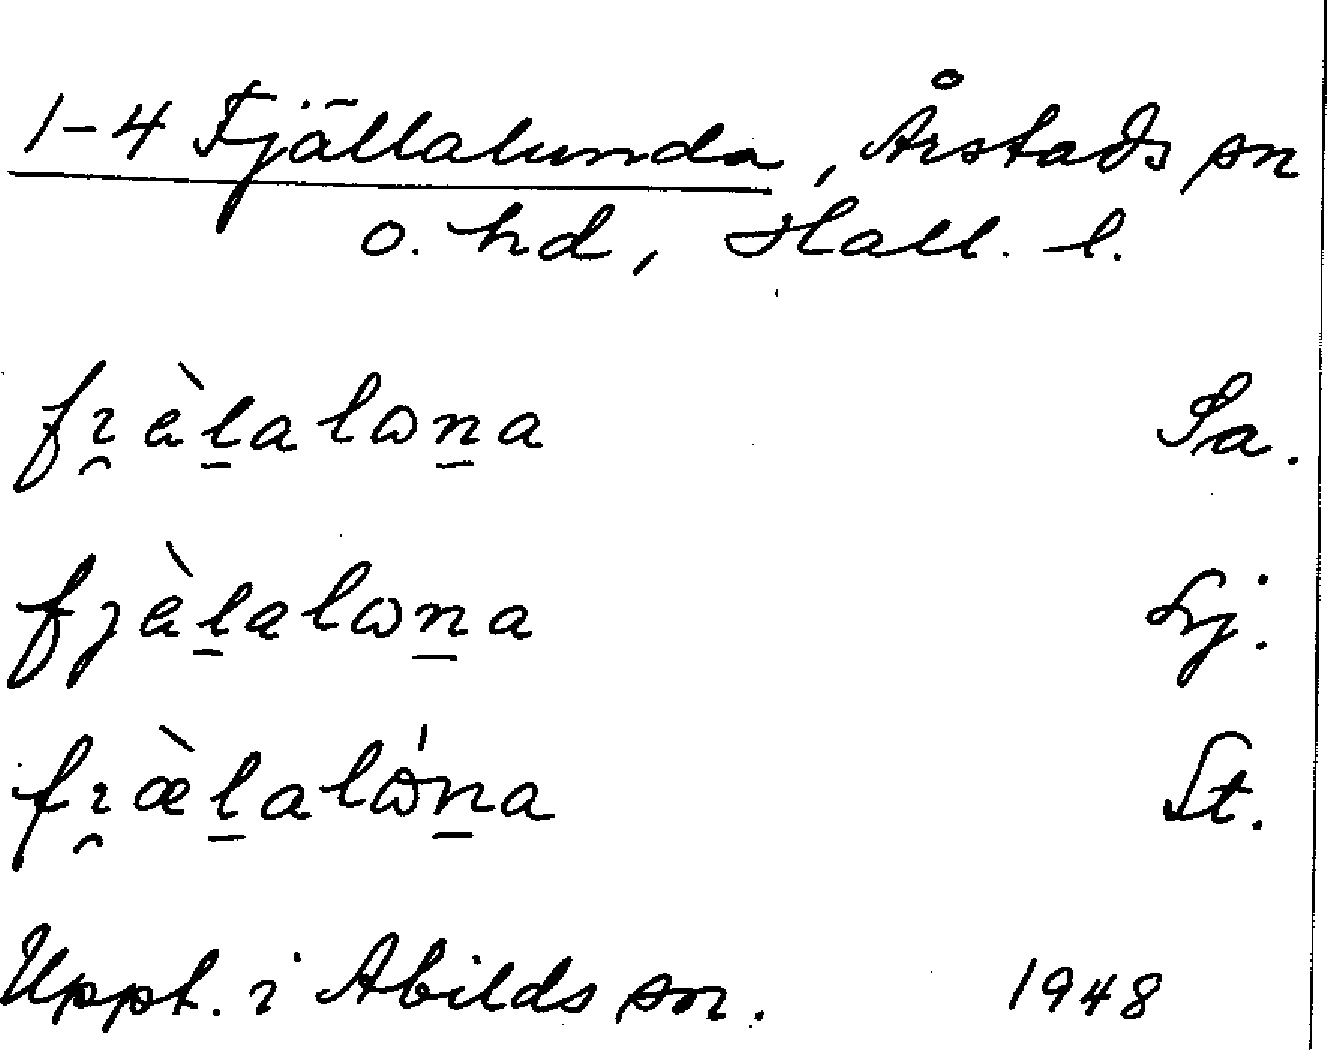 1-4 Fjällalunda, Årstads sn
o. hd, Hall. l.
fı̯èḻalωṉa Sa.
fjèḻalωṉa Lj.
fı̯æ̀ḻalώṉa St.
Uppt. i Abilds sn. 1948